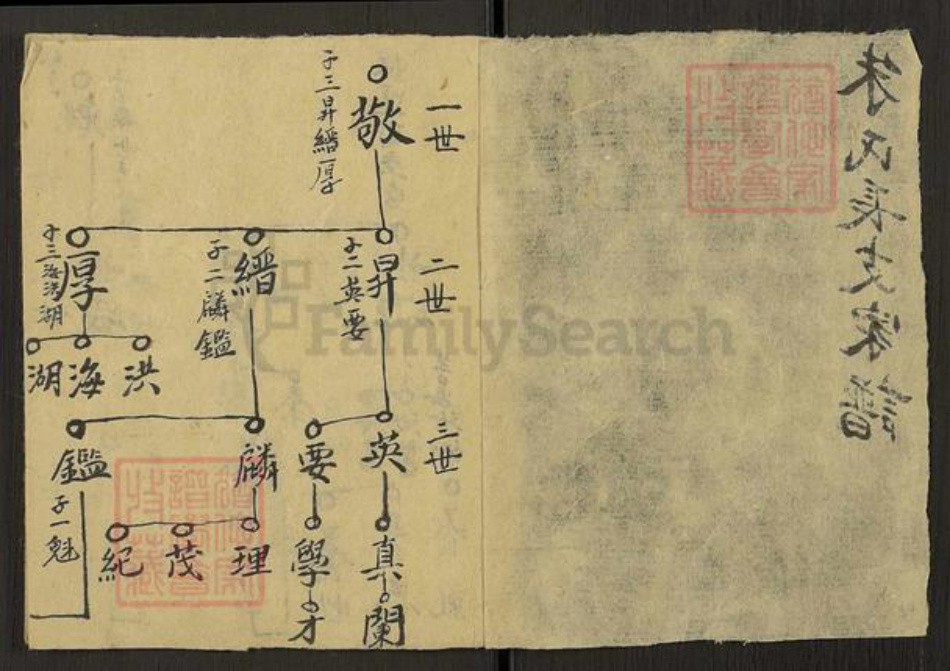 一世
敬
子三昇縉厚
二世
昇
子二英要
縉
子二麟鑑
厚
子三海洪湖
洪
海
湖
三世
英
要
麟
鑑
子一魁
真
學
理
茂
紀
蘭
才
FamilySearch